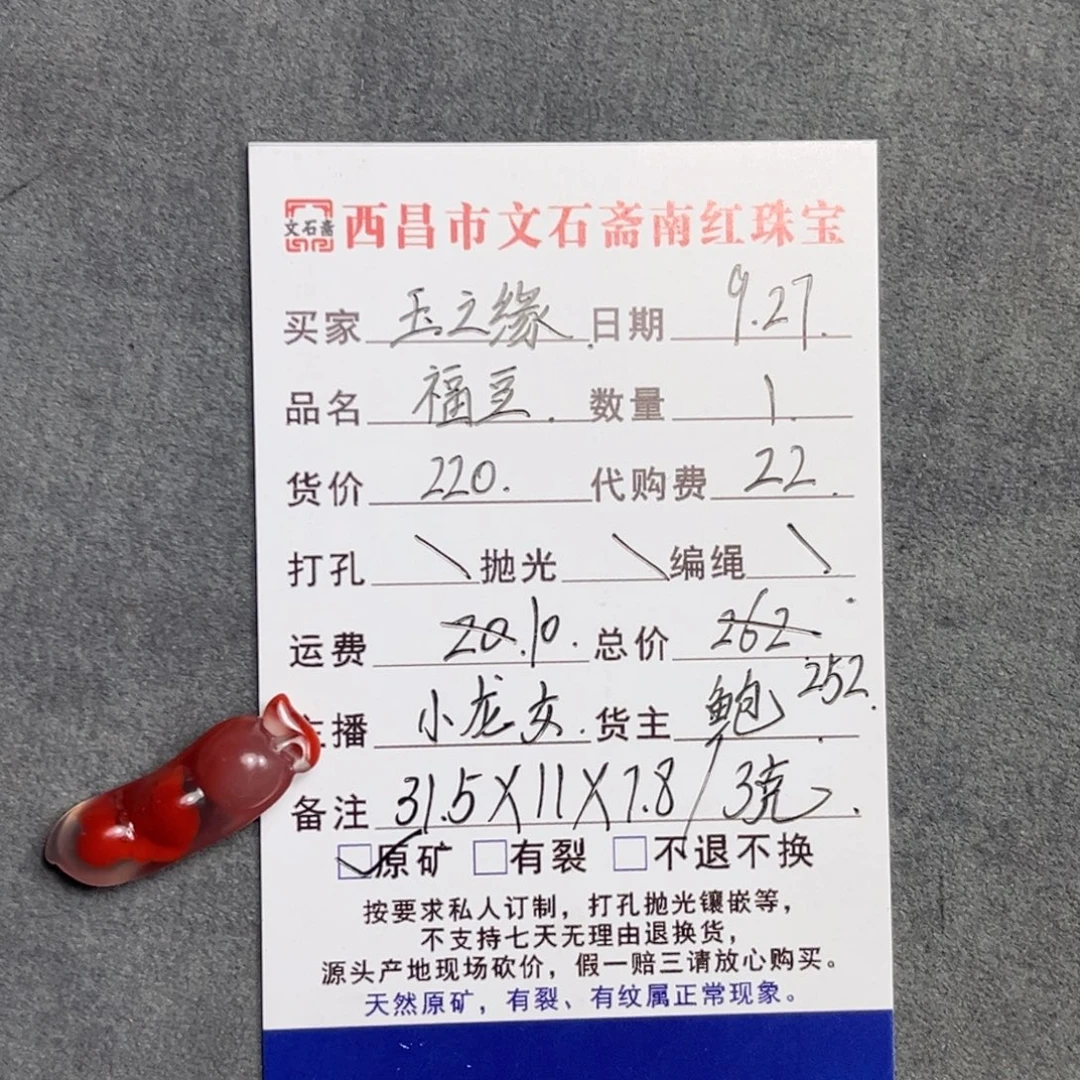 文石斋 西昌市文石斋南红珠宝
买家 玉之缘 日期 9.27.
品名 福豆. 数量 1.
货价 220. 代购费 22.
打孔 \ 抛光 \ 编绳 \
运费 20.10. 总价 262
252.
主播 小龙女. 货主 鲍.
备注 31.5X11X7.8/3克.
☑原矿 □有裂 □不退不换
按要求私人订制，打孔抛光镶嵌等，
不支持七天无理由退换货，
源头产地现场砍价，假一赔三请放心购买。
天然原矿，有裂、有纹属正常现象。